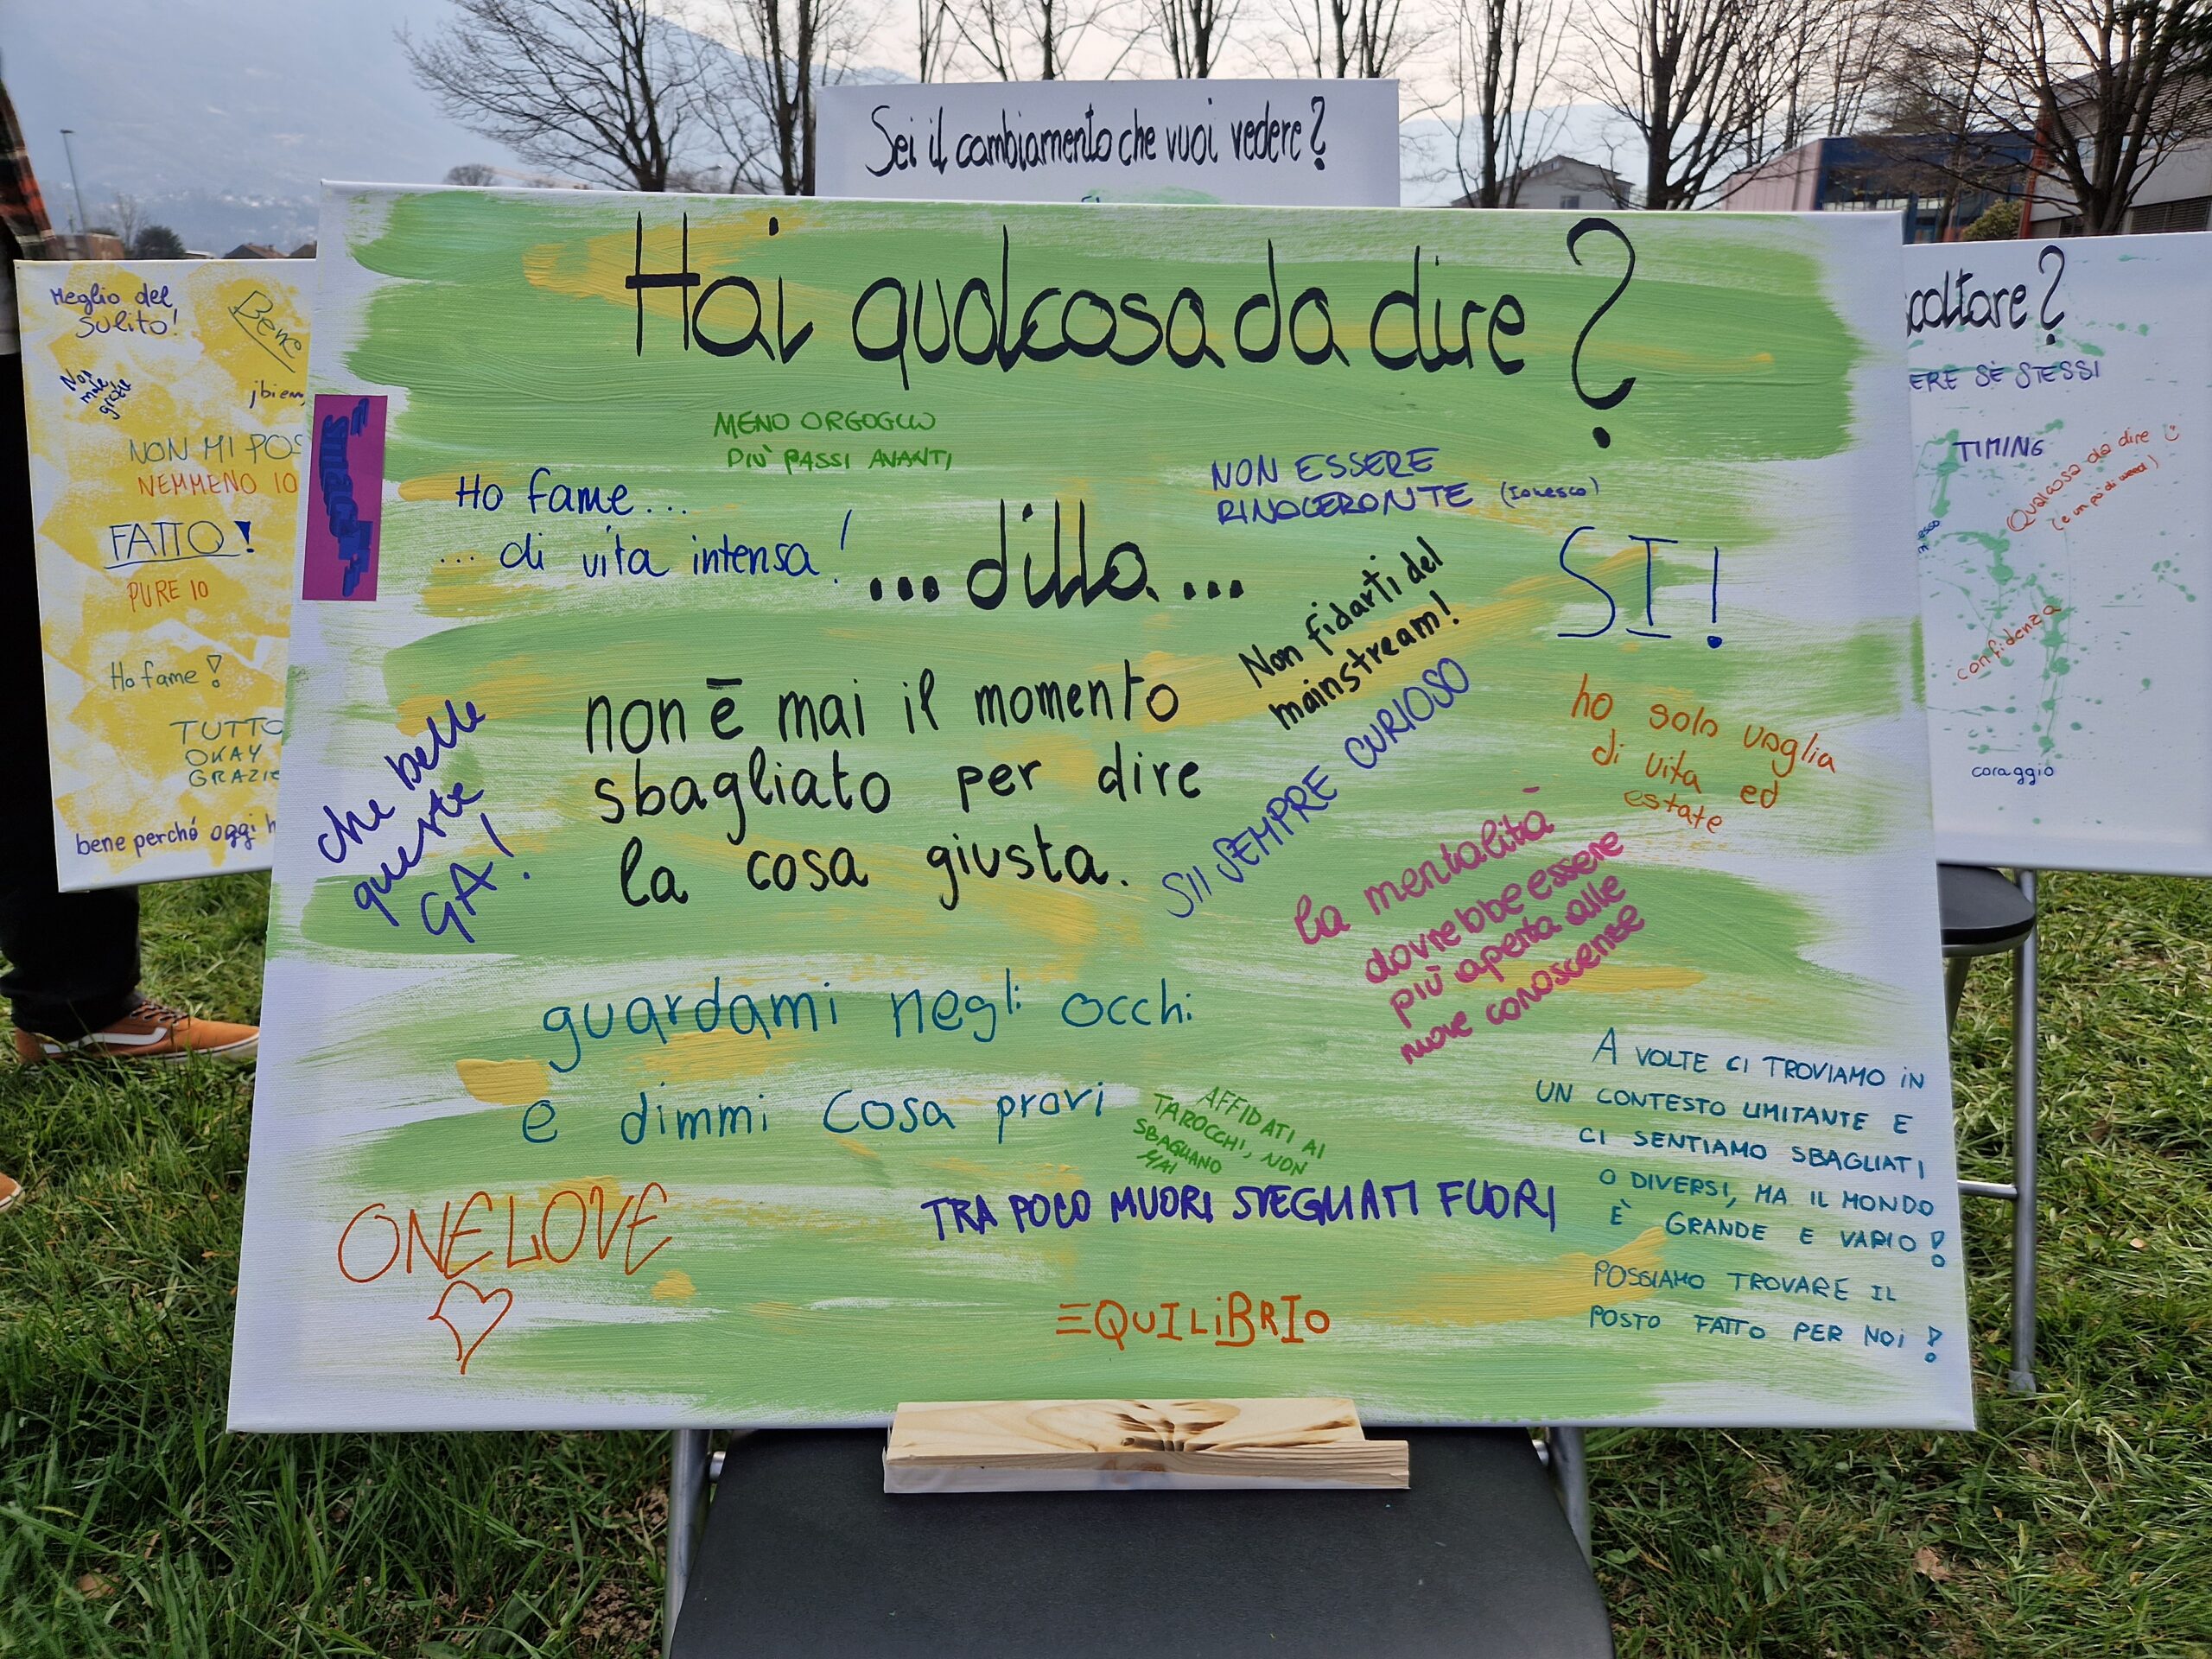 Sei il cambiamento che vuoi vedere?
Hai qualcosa da dire?
MENO ORGOGLIO
PIÙ PASSI AVANTI
Ho fame...
... di vita intensa!
NON ESSERE
RINOCERONTE (Ionesco)
...dillo...
SI!
Non fidarti del
mainstream!
non è mai il momento
sbagliato per dire
la cosa giusta.
SII SEMPRE CURIOSO
ho solo voglia
di vita ed
estate
che belle
queste
GA!
la mentalità
dovrebbe essere
più aperta alle
nuove conoscense
guardami negli occhi
e dimmi cosa provi
AFFIDATI AI
TAROCCHI, NON
SBAGLIANO
MAI
A VOLTE CI TROVIAMO IN
UN CONTESTO LIMITANTE E
CI SENTIAMO SBAGLIATI
O DIVERSI, MA IL MONDO
È GRANDE E VARIO!
POSSIAMO TROVARE IL
POSTO FATTO PER NOI!
TRA POCO MUORI SVEGLIATI FUORI
ONE LOVE
EQUILIBRIO
Meglio del
solito!
Bene
Non
male
grazie
¡bien,
NON MI POS
NEMMENO IO
FATTO!
PURE IO
Ho fame!
TUTTO
OKAY
GRAZIE
bene perché oggi h
coltare?
ERE SÈ STESSI
TIMING
Qualcosa da dire
(e un po' di
confidenza
coraggio